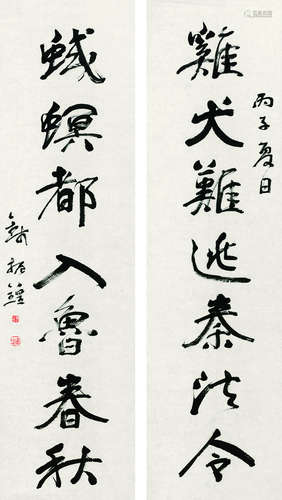 丙子夏日
雞犬難逃秦法令
蜮螟都入魯春秋
錢振鍠